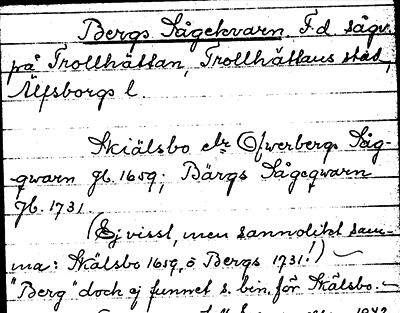 Bergs Sågekvarn. F.d. sågv.
på Trollhättan, Trollhättans stad,
Älfsborgs l.
Skiälsbo elr Öfwerbergs Såg-
qwarn Jb. 1659; Bärgs Sågeqwarn
Jb. 1731.
(Ej visst, men sannolikt sam-
ma: Skälsbo 1659, o Bergs 1731!)
"Berg" doch ej funnet s. bin. för Skälsbo.